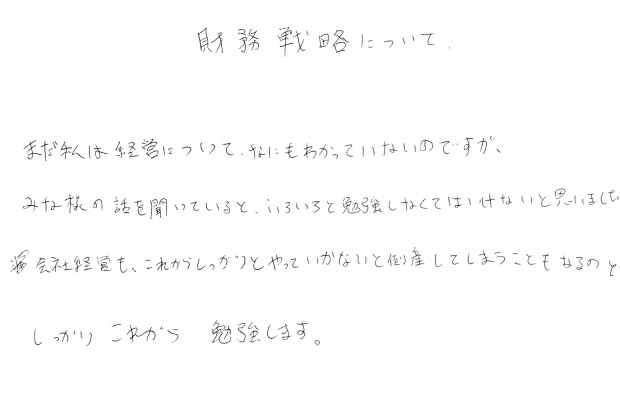 財務戦略について.
まだ私は経営について、なにもわかっていないのですが、
みな様の話を聞いていると、いろいろと勉強しなくてはいけないと思いました
会社経営も、これからしっかりとやっていかないと倒産してしまうこともなるのと、
しっかり これから 勉強します。